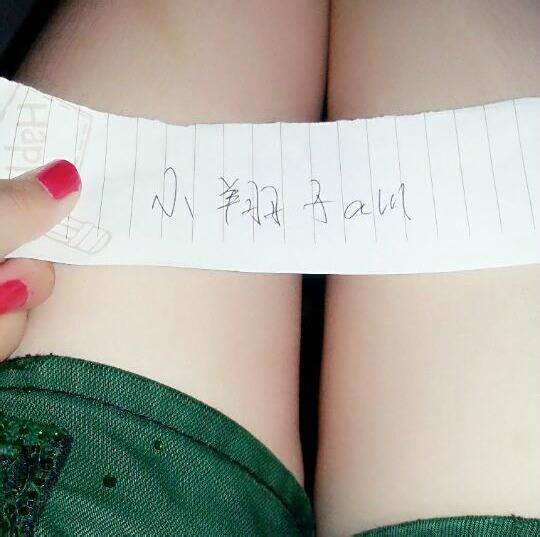 小翔子aui
Hap